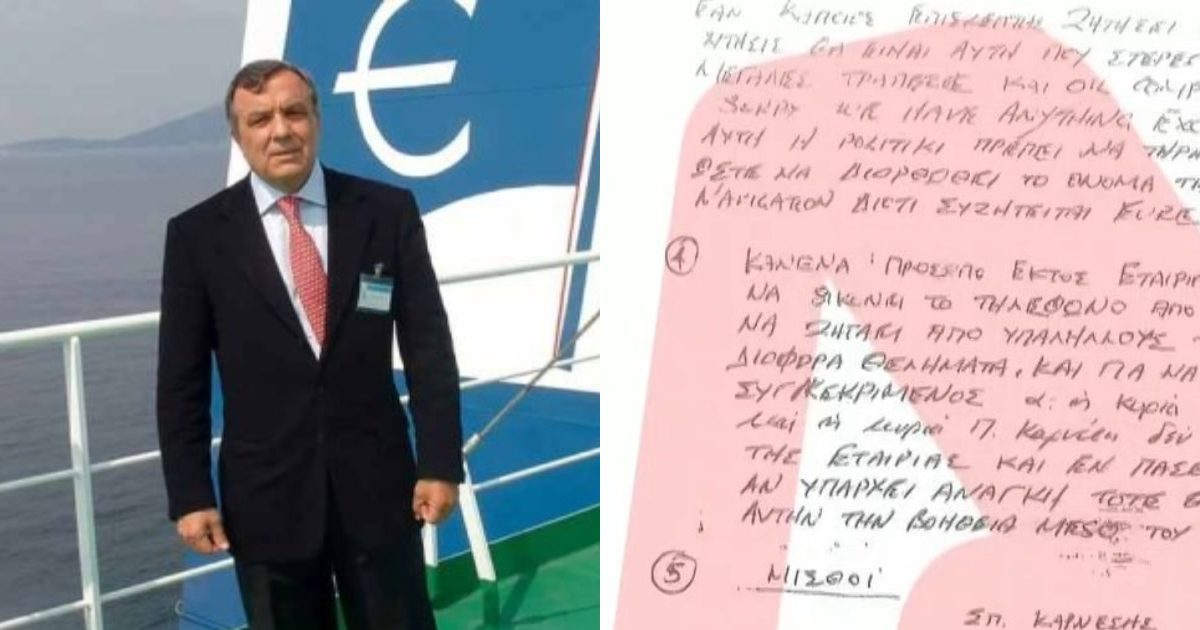 €
ΕΑΝ ΚΑΠΟΙΟΣ ΕΠΙΣΚΕΠΤΗΣ ΖΗΤΗΣΕΙ
ΘΑ ΕΙΝΑΙ ΑΥΤΗ ΠΟΥ
ΜΕΓΑΛΕΣ ΤΡΑΠΕΖΕΣ ΚΑΙ ΟΙΚ
WE HAVE ANYTHING
ΑΥΤΗ Η POLITIKI ΠΡΕΠΕΙ ΝΑ
ΩΣΤΕ ΝΑ ΔΙΟΡΘΩΘΕΙ ΤΟ ΟΝΟΜΑ
NAVIGATION ΔΙΟΤΙ ΣΥΖΗΤΕΙΤΑΙ
4 ΚΑΝΕΝΑ ΠΡΟΣΩΠΟ ΕΚΤΟΣ ΕΤΑΙΡΙ
ΝΑ ΣΙΚΩΝΕΙ ΤΟ ΤΗΛΕΦΩΝΟ ΑΠΟ
ΝΑ ΖΗΤΑΕΙ ΑΠΟ ΥΠΑΛΗΛΛΟΥΣ
ΔΙΑΦΟΡΑ ΘΕΛΗΜΑΤΑ, ΚΑΙ ΓΙΑ ΝΑ
ΣΥΓΚΕΚΡΙΜΕΝΟΣ α: η κυρία
και η κυρία Π. Καρνέση δεν
ΤΗΣ ΕΤΑΙΡΙΑΣ ΚΑΙ ΕΝ ΠΑΣΕ
ΑΝ ΥΠΑΡΧΕΙ ΑΝΑΓΚΗ ΤΟΤΕ
ΑΥΤΗΝ ΤΗΝ ΒΟΗΘΕΙΑ ΜΕΣΟ ΤΟΥ
5 ΜΙΣΘΟΙ
ΣΠ. ΚΑΡΝΕΣΗΣ